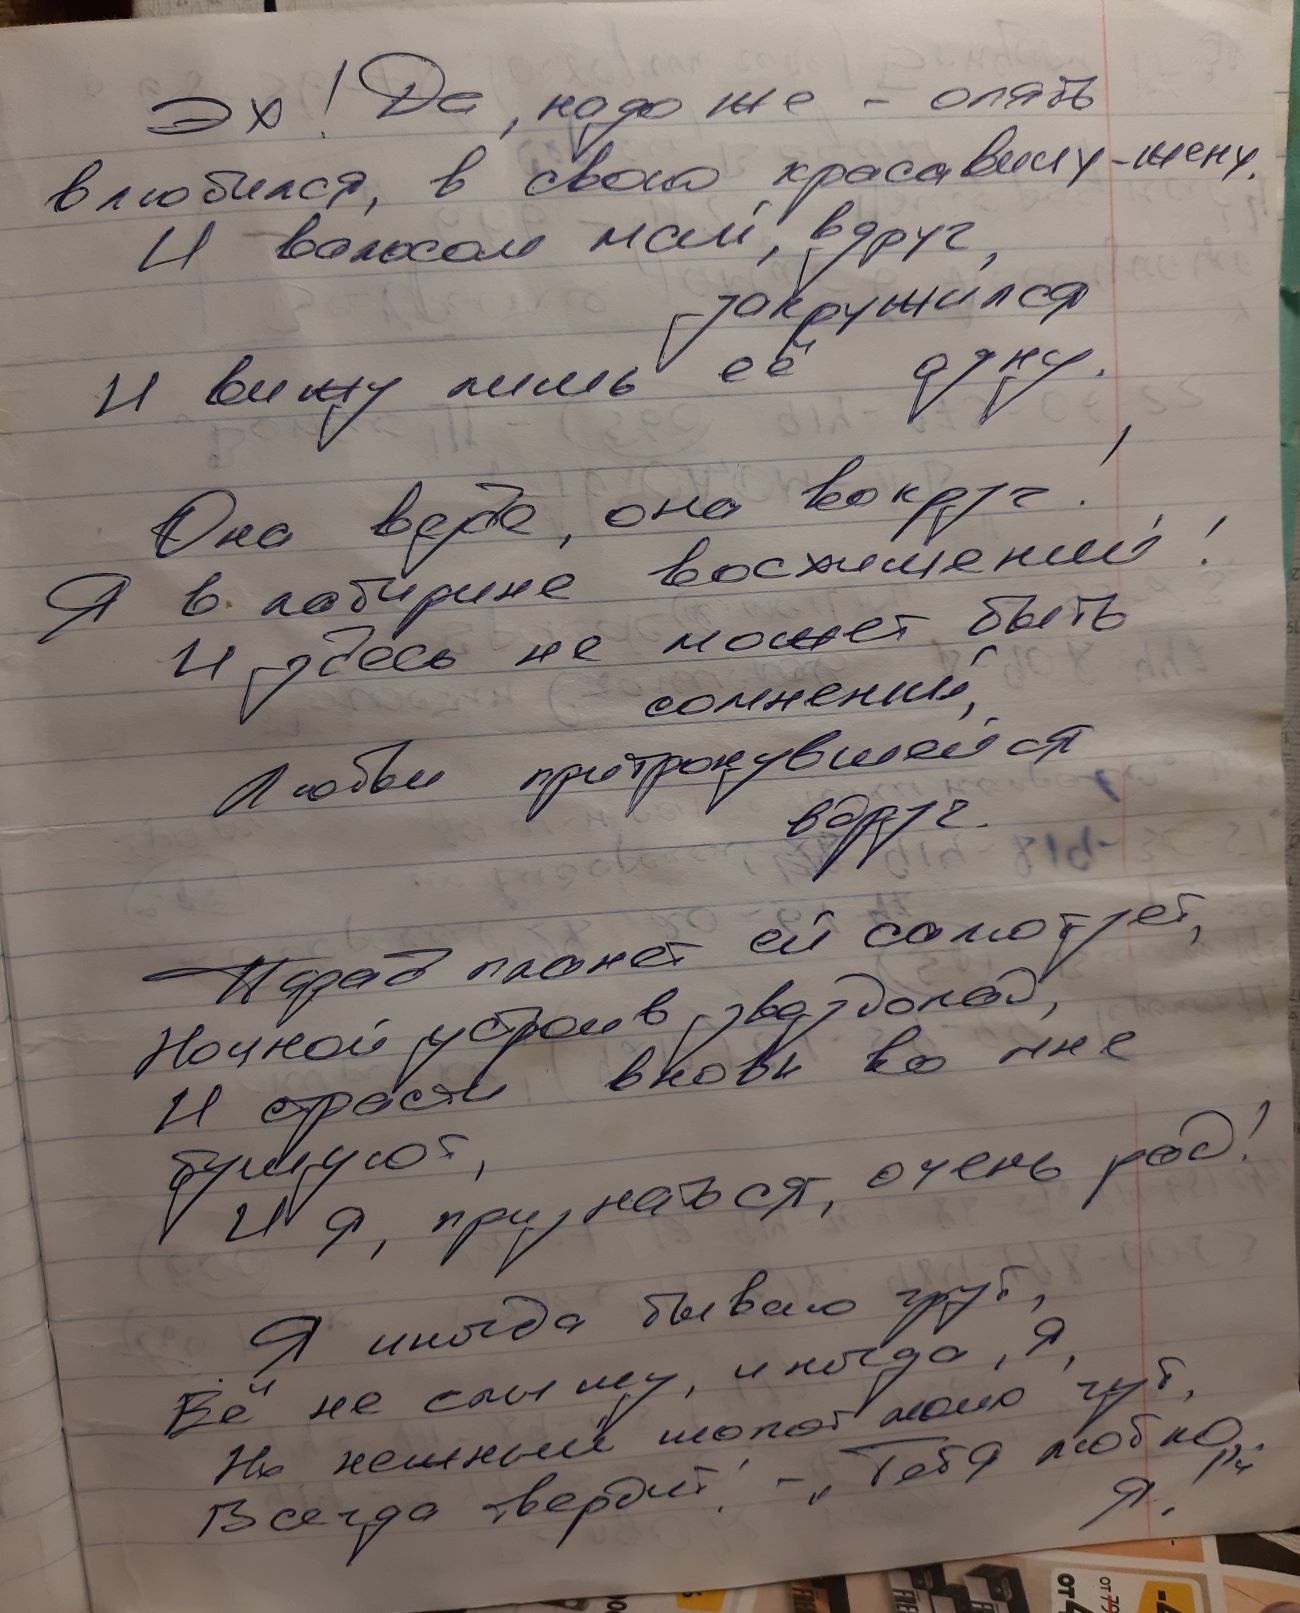 Эх! Да, надо же - опять
влюбился, в свою красавицу-жену.
И вальсом май, вдруг,
закружился
И вижу лишь её одну.
Она везде, она вокруг!
Я в лабиринте восхищений!
И здесь не может быть
сомнений,
Любви притронувшейся
вдруг.
Парад планет ей салютует,
Ночной устроив звездопад,
И страсти вновь во мне
бушуют,
И я, признаться, очень рад!
Я иногда бываю груб,
Её не слышу, иногда, я,
Но нежный шопот твоих губ,
Всегда твердит! - „Тебя люблю
я!